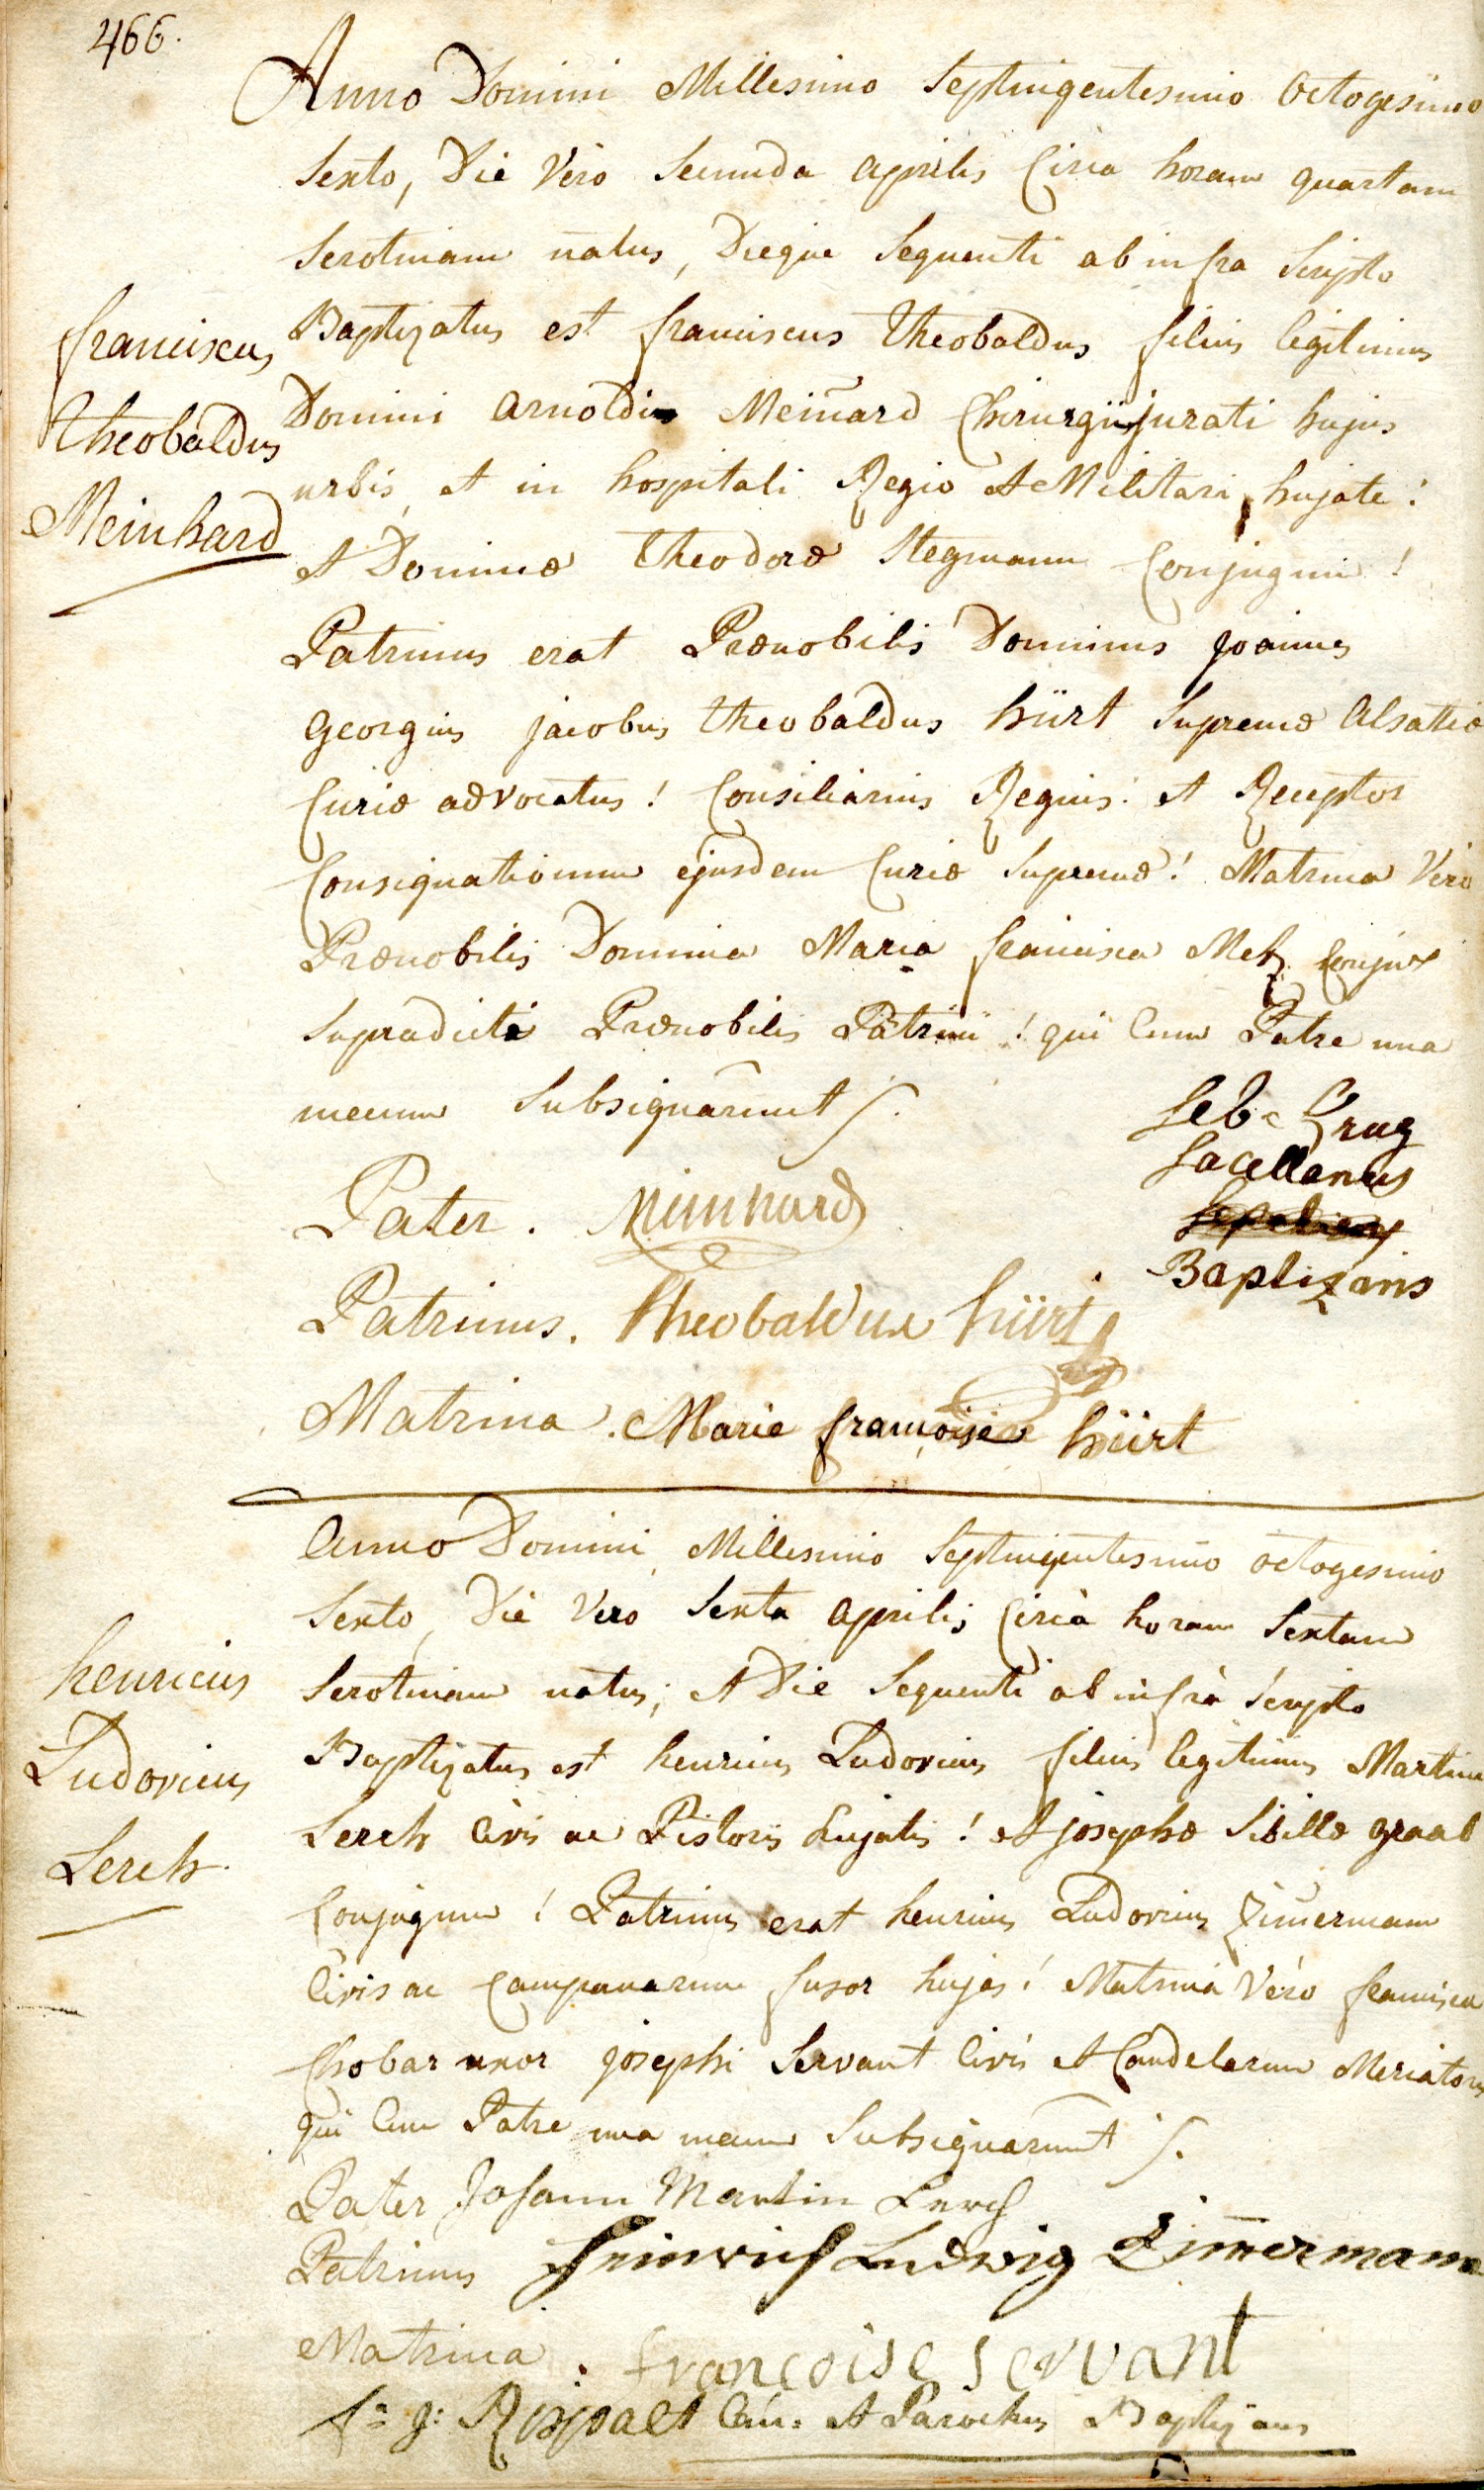 466.
Anno Domini Millesimo Septingentesimo Octogesimo
Sexto, Die Vero Secunda aprilis Circa horam quartam
Serotinam natus, Dieque Sequenti ab infra Scripto
Baptizatus est franciscus Theobaldus filius legitimus
Domini arnoldi Meinard Chirurgi jurati hujus
urbis, et in hospitali Regio et Militari hujate!
et Dominæ Theodoræ Stegmann Conjugum!
Patrinus erat Prænobilis Dominus joannes
georgius jacobus theobaldus hürt Supremæ Alsatiæ
Curiæ advocatus! Consiliarius Regius: et Receptor
Consignationum ejusdem Curiæ Supremæ! Matrina Vero
Prænobilis Domina Maria francisca Metz Conjux
Supradicti Prænobilis Patrini! qui Cum Patre una
mecum Subsignarunt
franciscus
Theobaldus
Meinhard
Seb.
Sacellanus
Baptizans
Pater. Meinhard
Patrinus. Theobaldus hürt
Matrina. Marie françoise hürt
Anno Domini Millesimo Septingentesimo octogesimo
Sexto, Die Vero Sexta aprilis Circa horam Sextam
Serotinam natus; et Die Sequenti ab infrà scripto
Baptizatus est henricus Ludovicus filius legitimus Martini
Lerch Civis ac Pistoris hujatis! et josephæ Sibillæ graab
Conjugum! Patrinus erat henricus Ludovicus Zimermann
Civis ac Campanarum fusor hujas! Matrina Vero francisca
Chobar uxor josephi Servant Civis et Candelarum Mercatoris
qui Cum Patre una mecum Subsignarunt
henricus
Ludovicus
Lerch.
Pater Johann Martin Lerch
Patrinus Heinrich Ludwig Zimermann
Matrina. francoise servant
f: j: et Parochus Baptizans